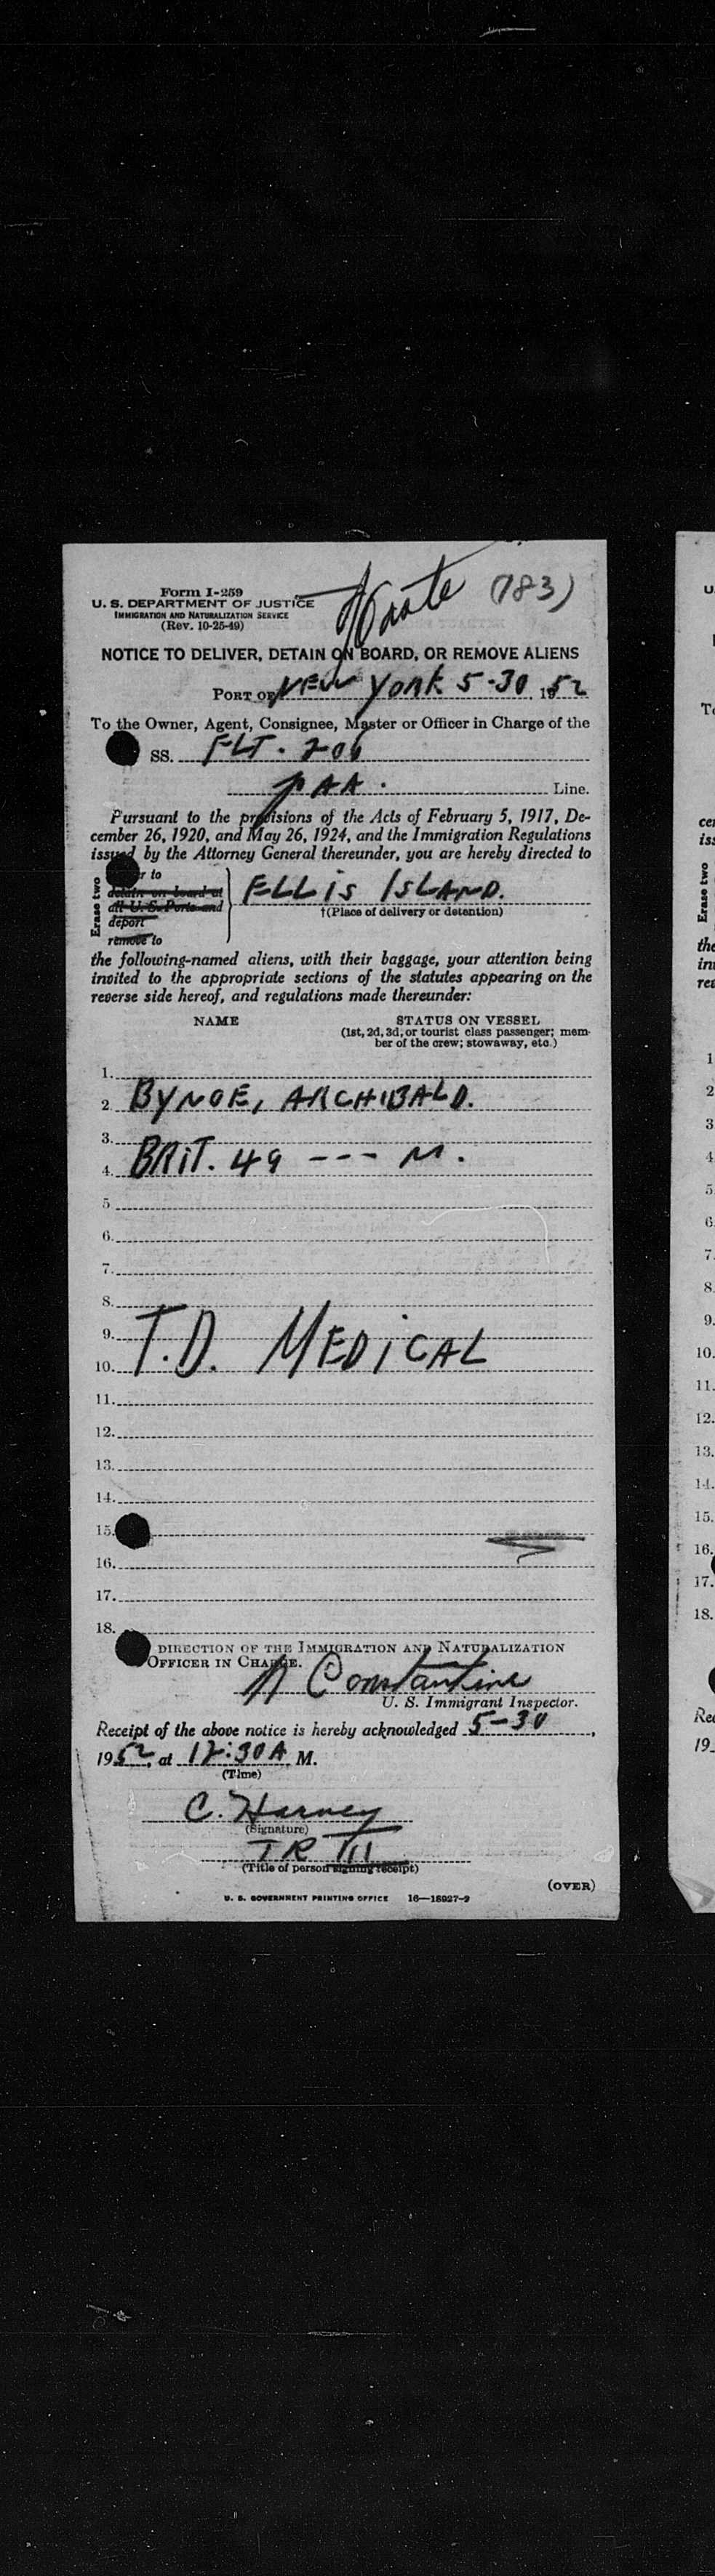 Form I-259
U. S. DEPARTMENT OF JUSTICE
IMMIGRATION AND NATURALIZATION SERVICE
(Rev. 10-25-49)
(783)
NOTICE TO DELIVER, DETAIN ON BOARD, OR REMOVE ALIENS
PORT OF NEW YORK 5-30, 1952
To the Owner, Agent, Consignee, Master or Officer in Charge of the
SS. FLT. 206
PAA. Line.
Pursuant to the provisions of the Acts of February 5, 1917, De-
cember 26, 1920, and May 26, 1924, and the Immigration Regulations
issued by the Attorney General thereunder, you are hereby directed to
Erase two
r to
detain on board at
all U. S. Ports and
deport
remove to
ELLIS ISLAND.
†(Place of delivery or detention)
the following-named aliens, with their baggage, your attention being
invited to the appropriate sections of the statutes appearing on the
reverse side hereof, and regulations made thereunder:
NAME STATUS ON VESSEL
(1st, 2d, 3d, or tourist class passenger; mem-
ber of the crew; stowaway, etc.)
1.
2. BYNOE, ARCHIBALD.
3.
4. BRIT. 49 --- M.
5.
6.
7.
8.
9. T.D. MEDICAL
10.
11.
12.
13.
14.
15.
16.
17.
18.
DIRECTION OF THE IMMIGRATION AND NATURALIZATION
OFFICER IN CHARGE.
Constantine
U. S. Immigrant Inspector.
Receipt of the above notice is hereby acknowledged 5-30,
1952, at 12:30A M.
(Time)
C. Harvey
(Signature)
TR
(Title of person signing receipt)
(OVER)
U. S. GOVERNMENT PRINTING OFFICE 16—18927-2
U.
To
cer
iss
Erase two
the
inv
rev
1
2
3
4
5
6
7.
8.
9.
10.
11.
12.
13.
14.
15.
16.
17.
18.
Rec
19